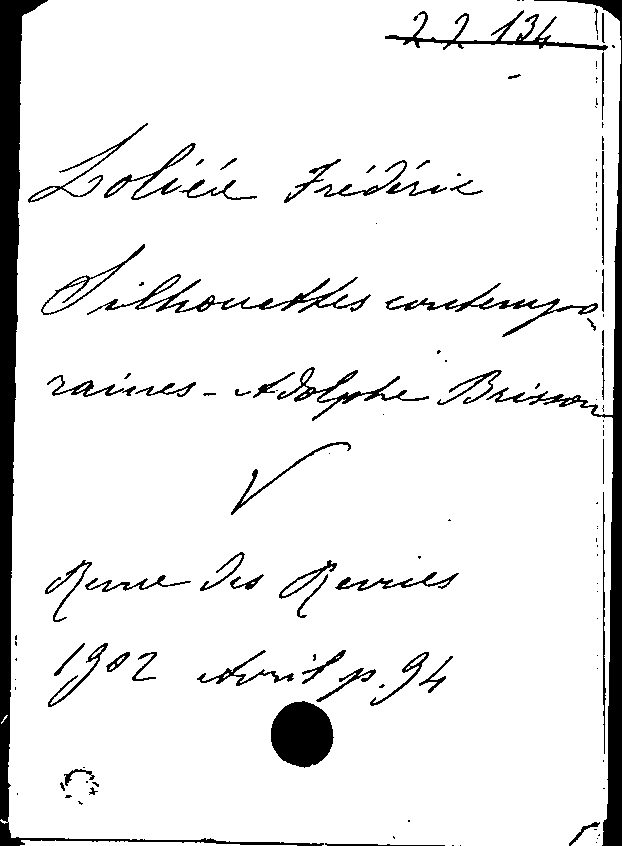 2.2.134
Loliée Frédéric
Silhouettes contempo
raines - Adolphe Brisson
V
Revue des Revues
1902 Avril p. 94